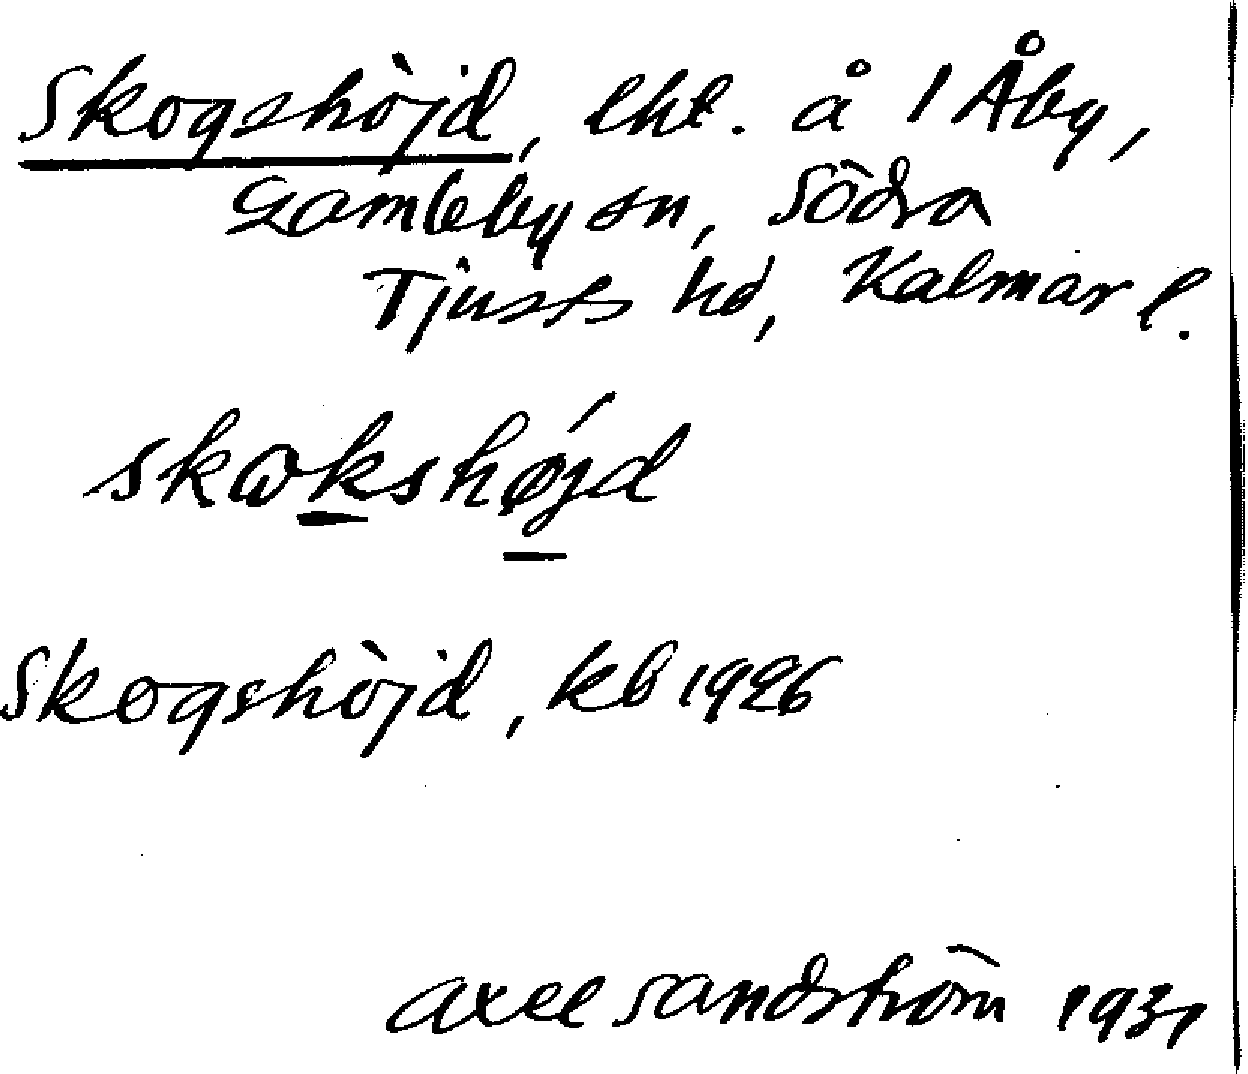 Skogshöjd, lht. å 1 Åby,
Gamleby sn, Södra
Tjusts hd, Kalmar l.
skωkshǿjd
Skogshöjd, kb 1926
Axel Sandström 1931